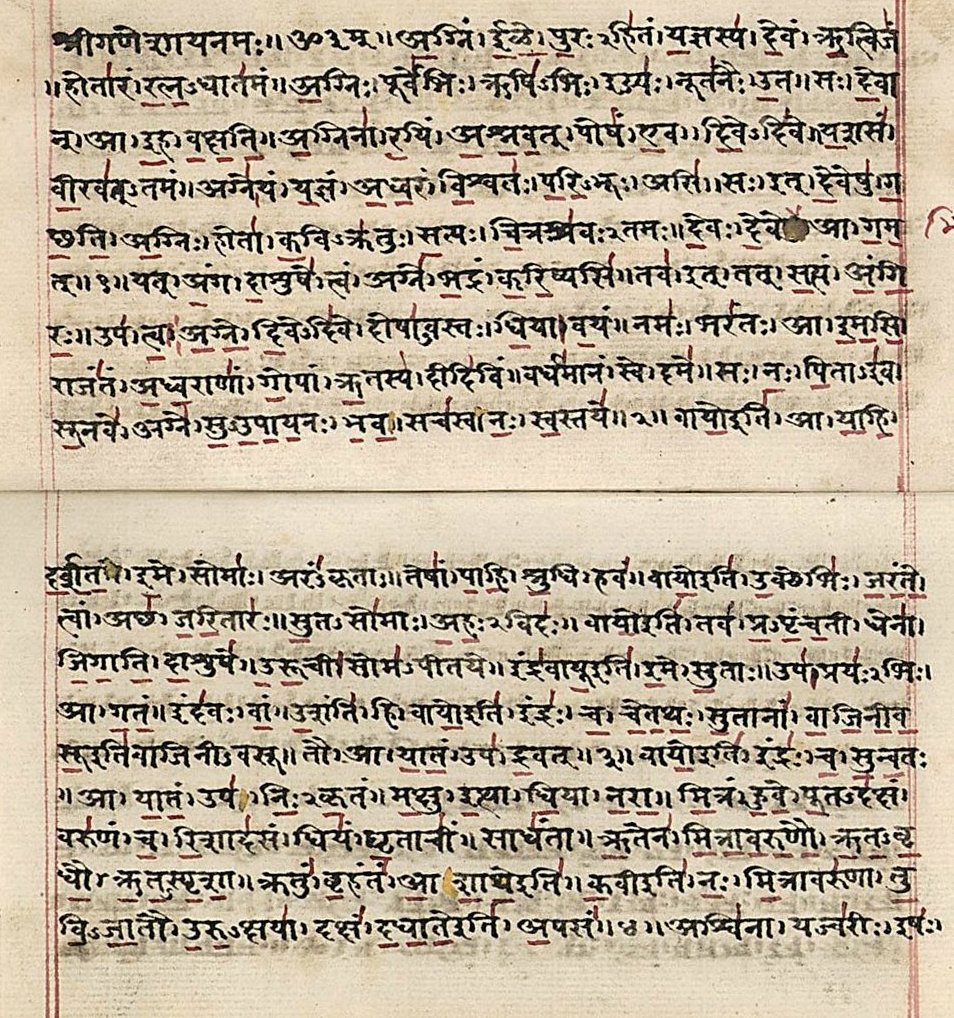 श्रीगणेशायनमः॥ ॐ३म्॥ अग्निं। ईळे। पुरःऽहितं। यज्ञस्य। देवं। ऋत्विजं
॥होतारं। रत्नऽधातमं॥ अग्निः। पूर्वेभिः। ऋषिऽभिः। ईड्यः। नूतनैः। उत॥ सः। देवा
न्। आ। इह। वक्षति॥ अग्निना। रयिं। अश्नवत्। पोषं। एव। दिवेऽदिवे॥ यशसं
वीरवत्ऽतमं॥ अग्ने। यं। यज्ञं। अध्वरं। विश्वतः। परिऽभूः। असि॥ सः। इत्। देवेषु। ग
च्छति। अग्निः। होता। कविऽक्रतुः। सत्यः। चित्रश्रवःऽतमः॥ देवः। देवे आ। गम
त्॥१॥ यत्। अंग। दाशुषे। त्वं। अग्ने। भद्रं। करिष्यसि॥ तव। इत्। तत्। सत्यं। अंगि
रः॥ उप। त्वा। अग्ने। दिवेऽदिवे। दोषाऽवस्तः। धिया। वयं॥ नमः। भरंतः। आ। इमसि
राजंतं। अध्वराणां। गोपां। ऋतस्य। दीदिविं॥ वर्धमानं। स्वे। दमे॥ सः। नः। पिताऽइव
सूनवे। अग्ने। सुऽउपायनः। भव॥ सचस्व। नः। स्वस्तये॥२॥ वायोइति। आ। याहि।
दर्शत। इमे। सोमाः। अरंऽकृताः॥ तेषां। पाहि। श्रुधि। हवं॥ वायोइति। उक्थेभिः। जरंते
त्वां। अच्छ। जरितारः॥ सुतऽसोमाः। अहःऽविदः॥ वायोइति। तव। प्रऽपृंचती। धेना।
जिगाति। दाशुषे। उरूची। सोमऽपीतये॥ इंद्रवायूइति। इमे। सुताः॥ उप। प्रयःऽभिः।
आ। गतं॥ इंदवः। वां। उशंति। हि। वायोइति। इंद्रः। च। चेतथः। सुतानां। वाजिनीव
सूइतिवाजिनीऽवसू॥ तौ। आ। यातं। उप। द्रवत्॥३॥ वायोइति। इंद्रः। च। सुन्वतः
॥आ। यातं। उप। निःऽकृतं॥ मक्षु। इत्था। धिया। नरा॥ मित्रं। हुवे। पूतऽदक्षं
वरुणं। च। रिशादसं। धियं। घृताचीं। साधंता॥ ऋतेन। मित्रावरुणौ। ऋतऽवृ
धौ। ऋतऽस्पृशा॥ क्रतुं। बृहंतं। आशाथेइति॥ कवीइति। नः। मित्रावरुणा। तु
विऽजातौ। उरुऽक्षया। दक्षं। दधातेइति। अपसं॥४॥ अश्विना। यज्वरीः। इषः।